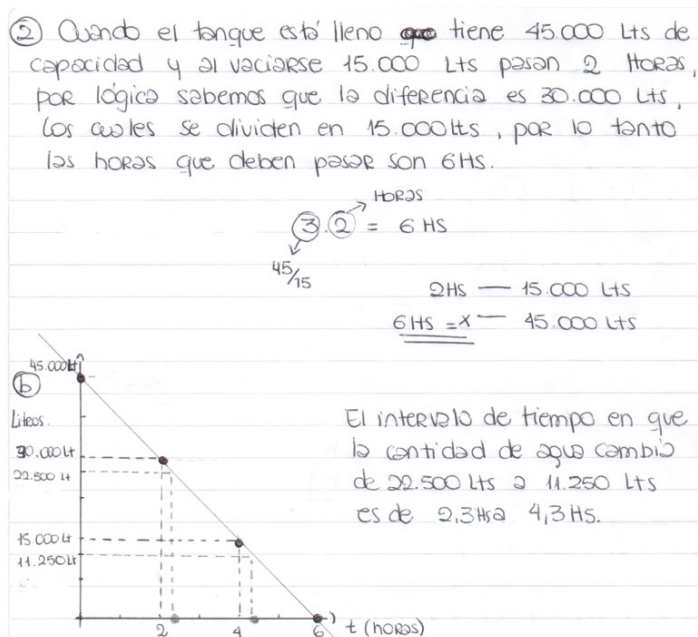 ② Cuando el tanque está lleno tiene 45.000 Lts de
capacidad y al vaciarse 15.000 Lts pasan 2 Horas,
por lógica sabemos que la diferencia es 30.000 Lts,
los cuales se dividen en 15.000 lts, por lo tanto
las horas que deben pasar son 6Hs.
HORAS
3.2 = 6 HS
45/15
2HS — 15.000 Lts
6 HS = x — 45.000 Lts
45.000 Lt
b
Litros.
30.000 Lt
22.500 Lt
15.000 Lt
11.250 Lt
2 4 6 t (horas)
El intervalo de tiempo en que
la cantidad de agua cambio
de 22.500 Lts a 11.250 Lts
es de 2,3Hs a 4,3 Hs.